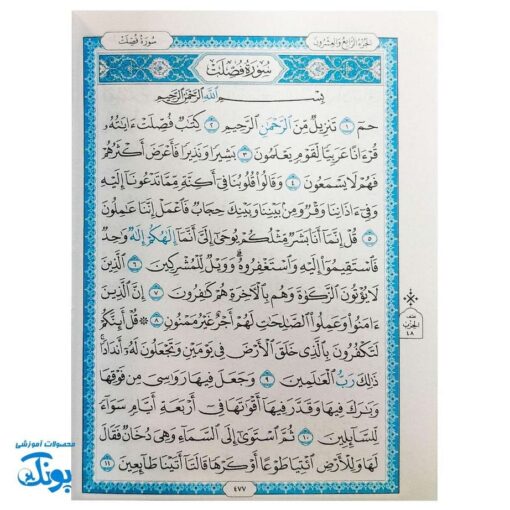 الجزء الرابع والعشرون
سورة فصلت
سُورَةُ فُصِّلَتْ
بِسْمِ اللَّهِ الرَّحْمَٰنِ الرَّحِيمِ
حمٓ ١ تَنزِيلٌ مِّنَ الرَّحْمَٰنِ الرَّحِيمِ ٢ كِتَابٌ فُصِّلَتْ ءَايَاتُهُۥ
قُرْءَانًا عَرَبِيًّا لِّقَوْمٍ يَعْلَمُونَ ٣ بَشِيرًا وَنَذِيرًا فَأَعْرَضَ أَكْثَرُهُمْ
فَهُمْ لَا يَسْمَعُونَ ٤ وَقَالُوا قُلُوبُنَا فِي أَكِنَّةٍ مِّمَّا تَدْعُونَا إِلَيْهِ
وَفِي ءَاذَانِنَا وَقْرٌ وَمِن بَيْنِنَا وَبَيْنِكَ حِجَابٌ فَاعْمَلْ إِنَّنَا عَامِلُونَ
٥ قُلْ إِنَّمَا أَنَا بَشَرٌ مِّثْلُكُمْ يُوحَىٰ إِلَيَّ أَنَّمَا إِلَٰهُكُمْ إِلَٰهٌ وَاحِدٌ
فَاسْتَقِيمُوا إِلَيْهِ وَاسْتَغْفِرُوهُ وَوَيْلٌ لِّلْمُشْرِكِينَ ٦ الَّذِينَ
لَا يُؤْتُونَ الزَّكَوٰةَ وَهُم بِالْآخِرَةِ هُمْ كَافِرُونَ ٧ إِنَّ الَّذِينَ
ءَامَنُوا وَعَمِلُوا الصَّالِحَاتِ لَهُمْ أَجْرٌ غَيْرُ مَمْنُونٍ ٨ ۞ قُلْ أَئِنَّكُمْ
لَتَكْفُرُونَ بِالَّذِي خَلَقَ الْأَرْضَ فِي يَوْمَيْنِ وَتَجْعَلُونَ لَهُۥ أَندَادًا
ذَٰلِكَ رَبُّ الْعَالَمِينَ ٩ وَجَعَلَ فِيهَا رَوَاسِيَ مِن فَوْقِهَا
وَبَارَكَ فِيهَا وَقَدَّرَ فِيهَا أَقْوَاتَهَا فِي أَرْبَعَةِ أَيَّامٍ سَوَاءً
لِّلسَّائِلِينَ ١٠ ثُمَّ اسْتَوَىٰ إِلَى السَّمَاءِ وَهِيَ دُخَانٌ فَقَالَ
لَهَا وَلِلْأَرْضِ ائْتِيَا طَوْعًا أَوْ كَرْهًا قَالَتَا أَتَيْنَا طَائِعِينَ ١١
٤٧٧
الحزب
٤٨
محصولات آموزشی
پونک